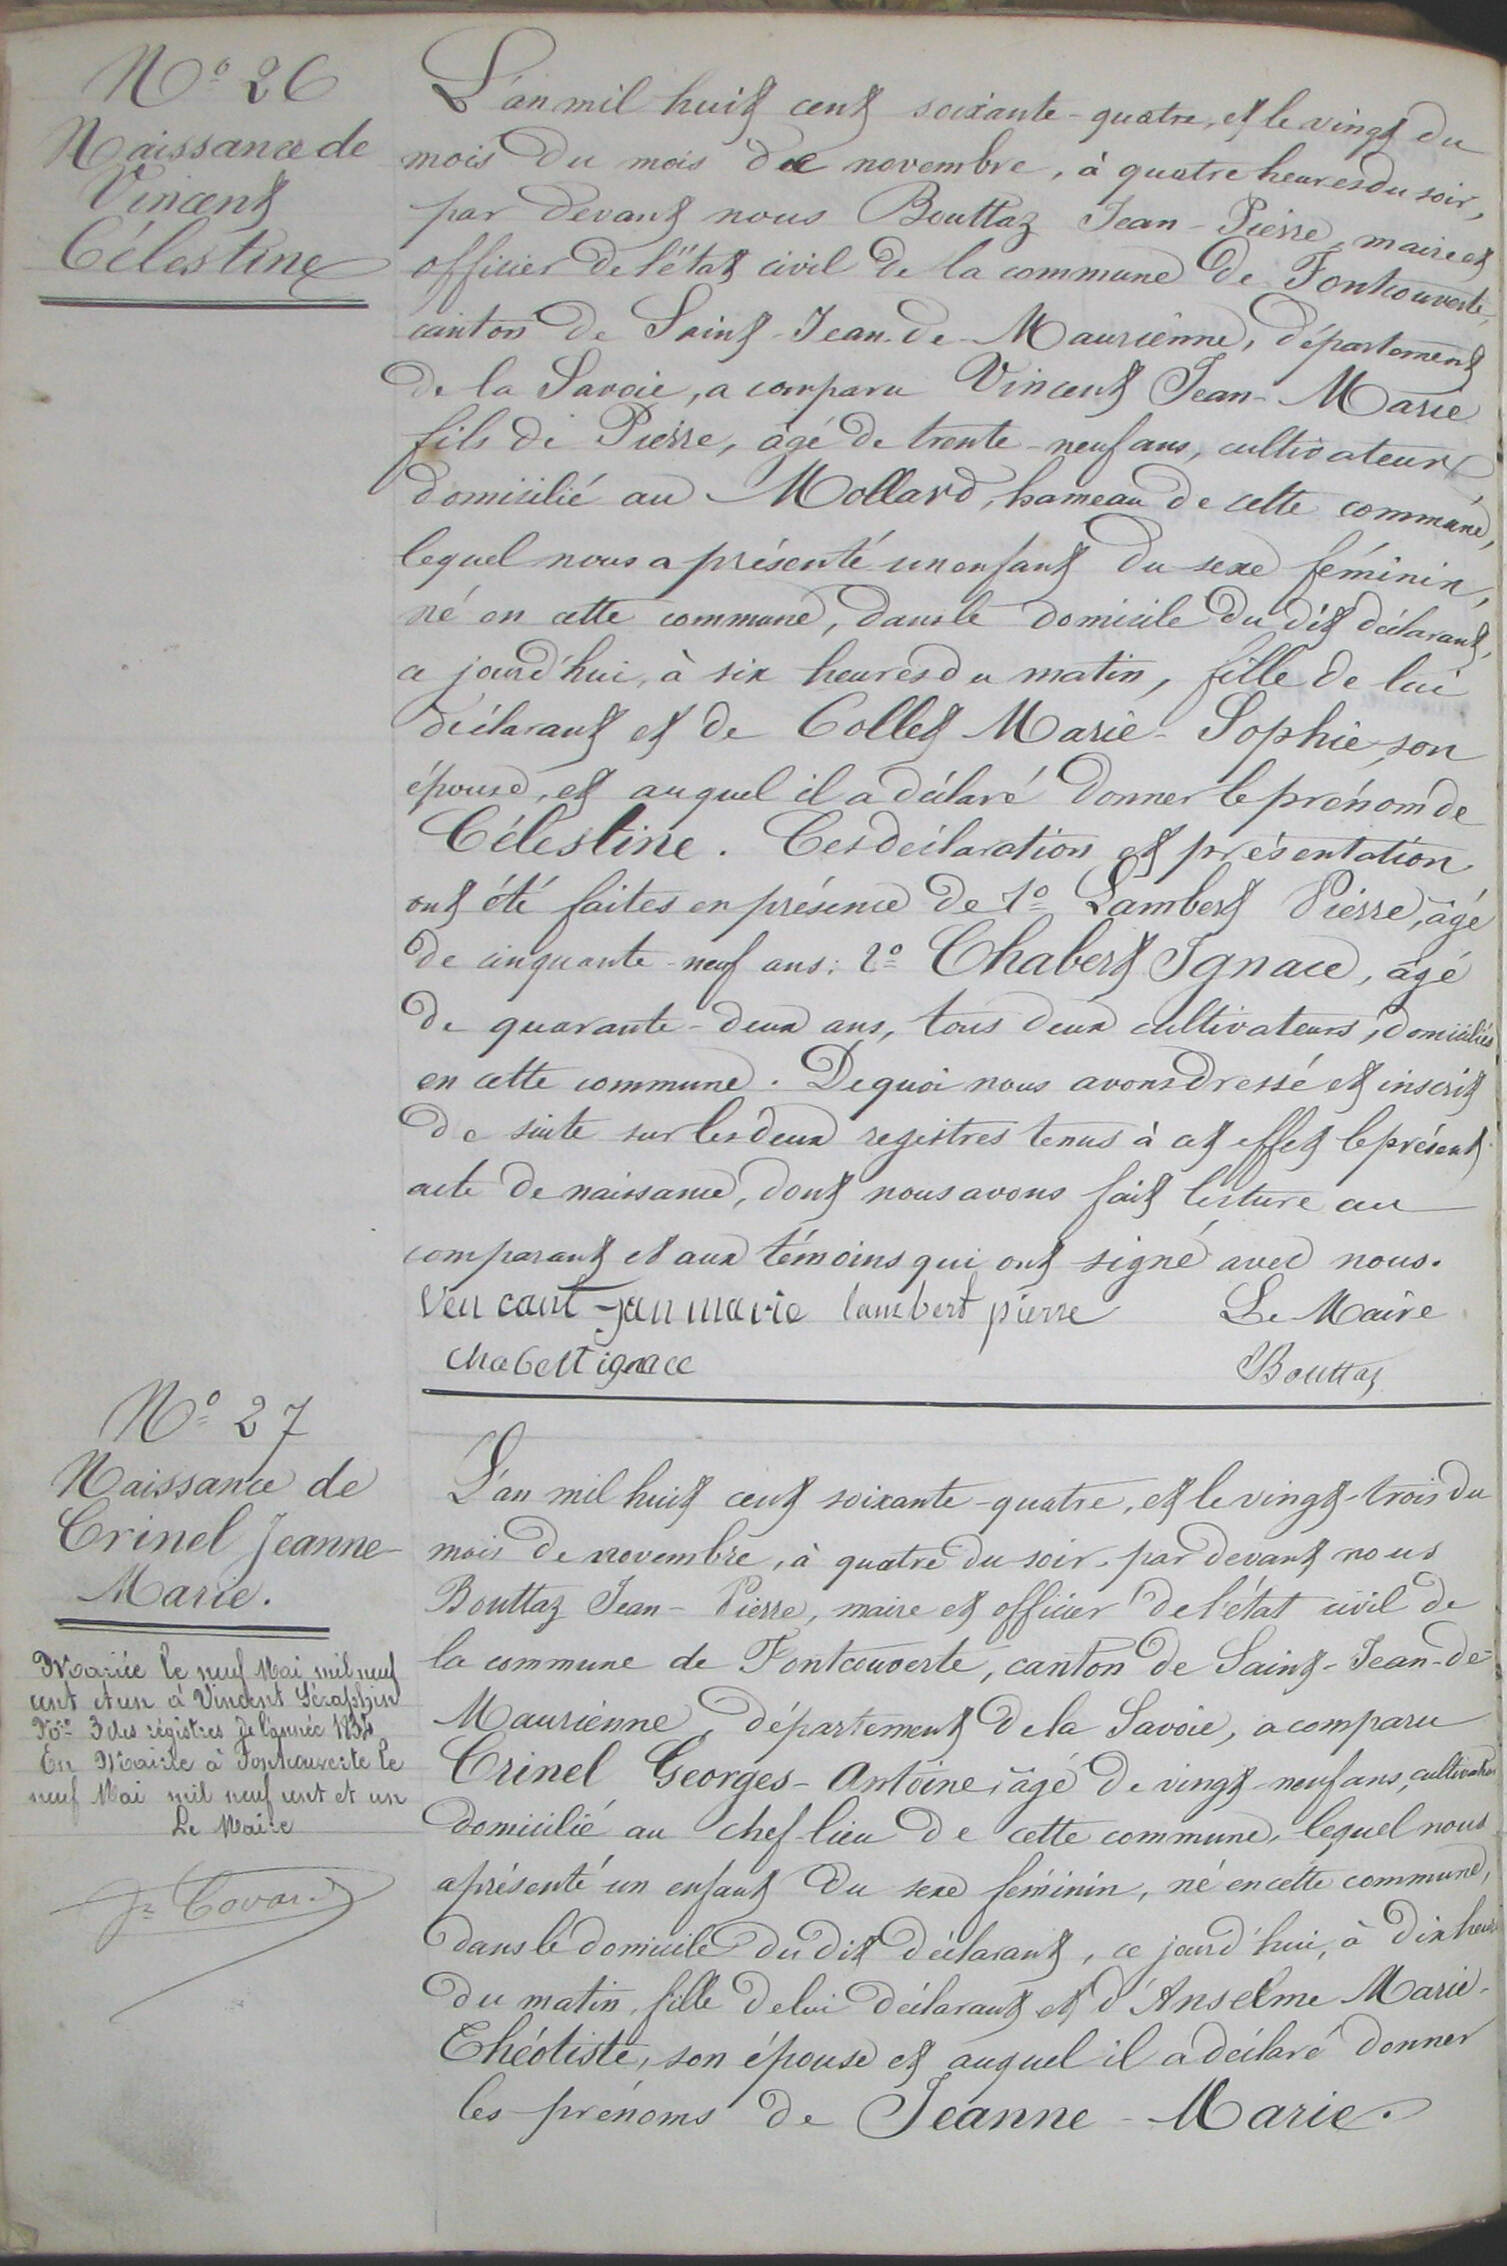 No 26
Naissance de
Vincent
Célestine
L'an mil huit cent soixante-quatre, et le vingt du
mois du mois de novembre, à quatre heures du soir,
par devant nous Bouttaz Jean-Pierre, maire et
officier de l'état civil de la commune de Fontcouverte,
canton de Saint-Jean-de-Maurienne, département
de la Savoie, a comparu Vincent Jean-Marie
fils de Pierre, âgé de trente-neuf ans, cultivateur
domicilié au Mollard, hameau de cette commune,
lequel nous a présenté un enfant du sexe féminin,
né en cette commune, dans le domicile du dit déclarant,
a jourd'hui, à six heures du matin, fille de lui
déclarant et de Collet Marie-Sophie, son
épouse, et auquel il a déclaré donner le prénom de
Célestine. Ces déclaration et présentation
ont été faites en présence de 1o Lambert Pierre, âgé
de cinquante-neuf ans; 2o Chabert Ignace, âgé
de quarante-deux ans, tous deux cultivateurs, domiciliés
en cette commune. De quoi nous avons dressé et inscrit
de suite sur les deux registres tenus à cet effet le présent
acte de naissance, dont nous avons fait lecture au
comparant et aux témoins qui ont signé avec nous.
Ven cant jan marie lambert pierre Le Maire
chabert ignace Bouttaz
No 27
Naissance de
Crinel Jeanne-
Marie.
Mariée le neuf Mai mil neuf
cent et un à Vincent Séraphin
No 3 des régistres de l'année
En Mairie à Fontcouverte le
neuf Mai mil neuf cent et un
Le Maire
L'an mil huit cent soixante-quatre, et le vingt-trois du
mois de novembre, à quatre du soir, par devant nous
Bouttaz Jean-Pierre, maire et officier de l'état civil de
la commune de Fontcouverte, canton de Saint-Jean-de-
Maurienne, département de la Savoie, a comparu
Crinel Georges-Antoine, âgé de vingt-neuf ans, cultivateur
domicilié au chef-lieu de cette commune, lequel nous
a présenté un enfant du sexe féminin, né en cette commune,
dans le domicile du dit déclarant, ce jourd'hui, à dix heures
du matin, fille de lui déclarant et d'Anselme Marie-
Théotiste, son épouse et auquel il a déclaré donner
les prénoms de Jeanne-Marie.